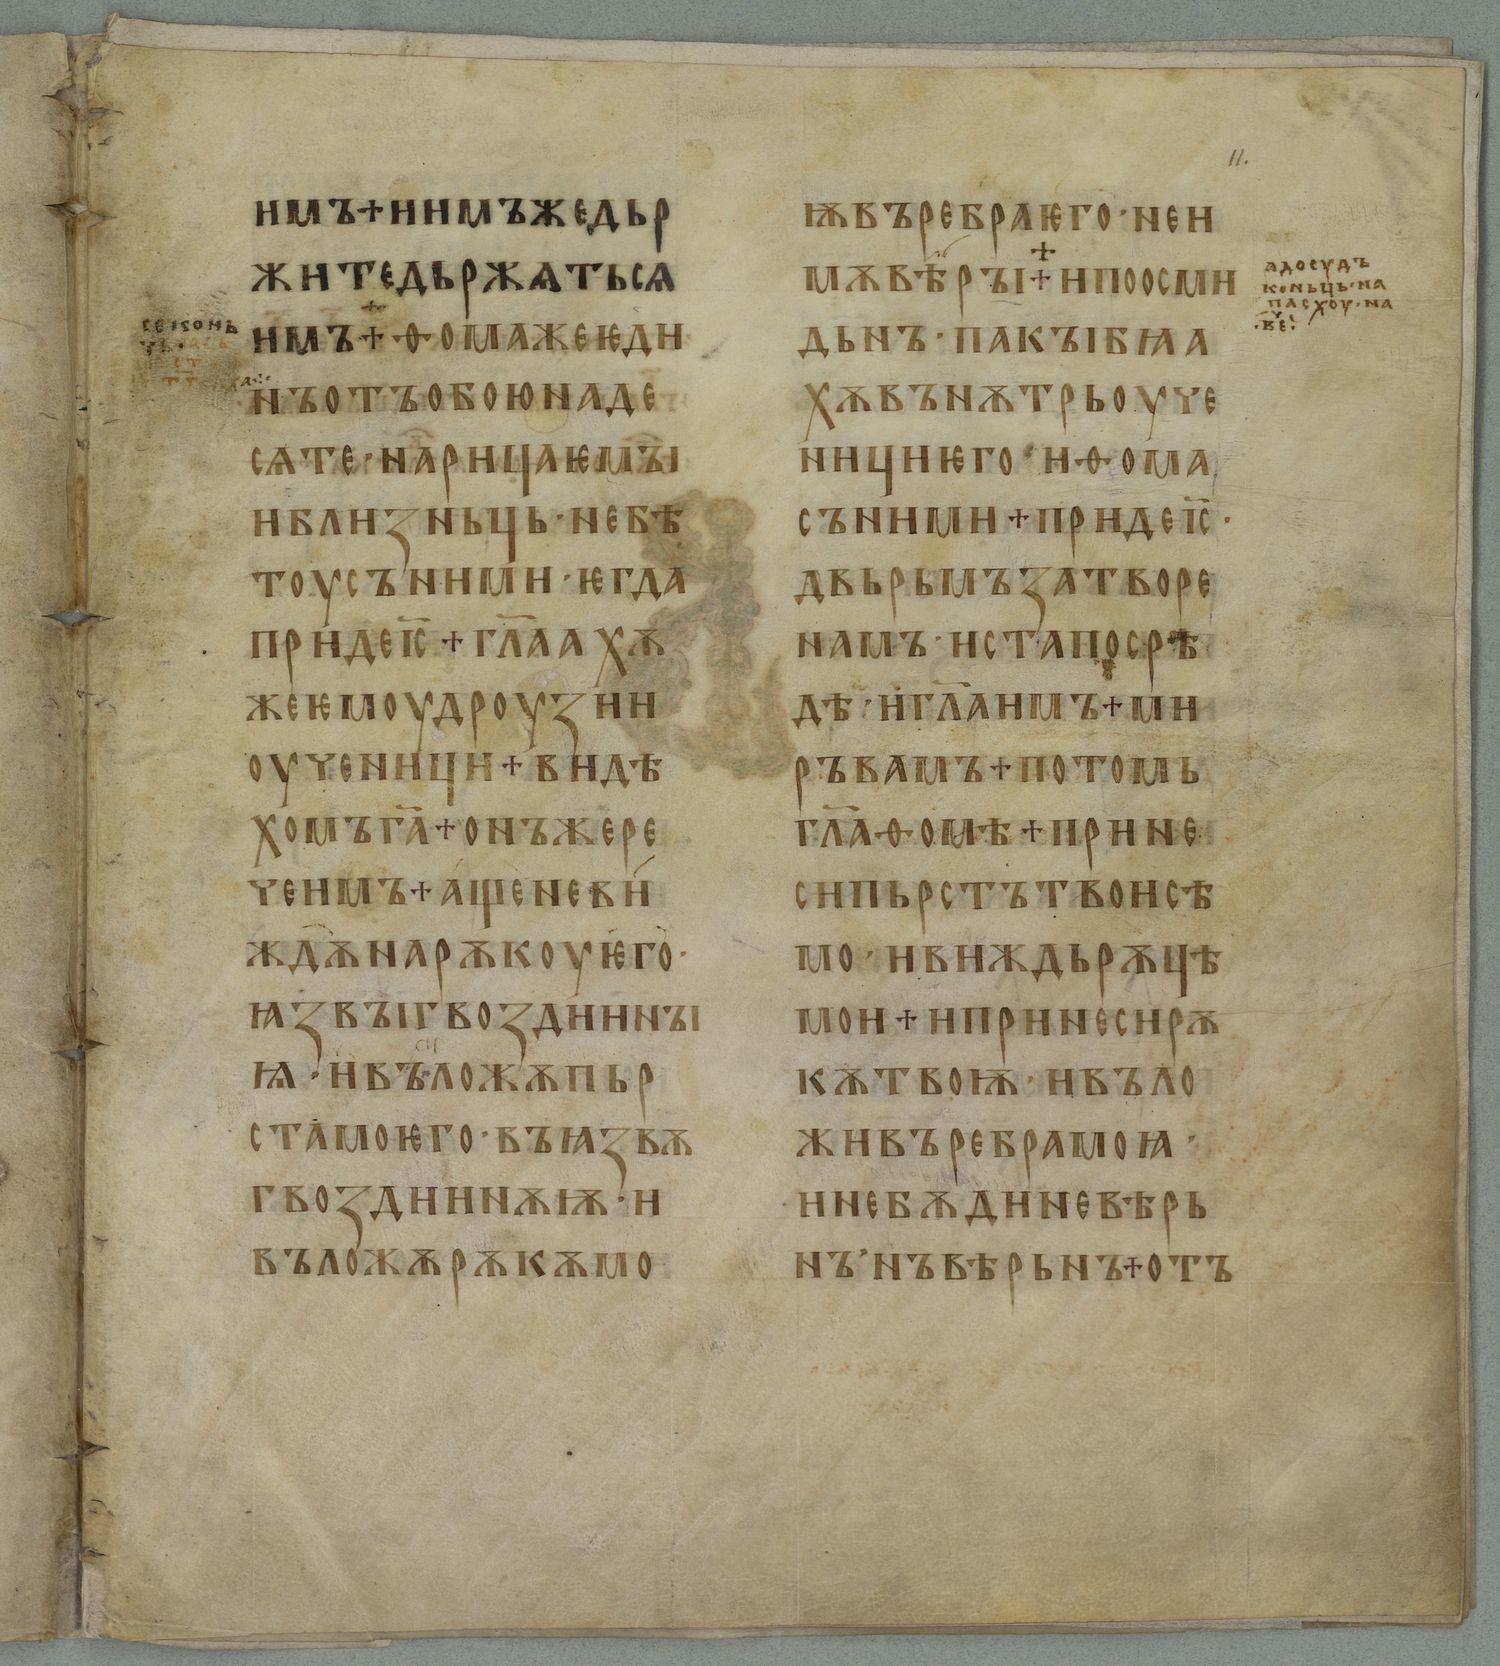 11.
имъ + иимъжедьр
житедьржѧтьсѧ
имъ + ѳомажеѥди
нъотъобоюнаде
сѧте · нарицаѥмꙑи
иблизньць · небѣ
тоусъними · ѥгда
придеі҃с + гл҃аахѫ
жеѥмоудроузии
оученици + видѣ
хомъга҃ + онъжере
чеимъ + ащеневи
ждѫнарѫкоуѥго ·
ꙗзвꙑгвоздиинꙑ
ꙗ · ивъложѫпьр
стамоѥго · въꙗзвѫ
гвоздиинѫѭ · и
въложѫрѫкѫмо
ѭвъребраѥго · неи
мѫвѣрꙑ + ипоосми
дьнъ · пакꙑбꙗа
хѫвънѫтрьоуче
ницииѥго · иѳома
съними + придеі҃с ·
двьрьмъзатворе
намъ · истапосрѣ
дѣ · игл҃аимъ + ми
ръвамъ + потомь
гл҃аѳомѣ + прине
сипьрстътвоисѣ
мо · ивиждьрѫцѣ
мои + ипринесирѫ
кѫтвоѭ · ивъло
живъребрамоꙗ ·
инебѫдиневѣрь
нъ · нъвѣрьнъ + отъ
адосудъ
коньць · на
пасхоу · на
ве҃ч҃